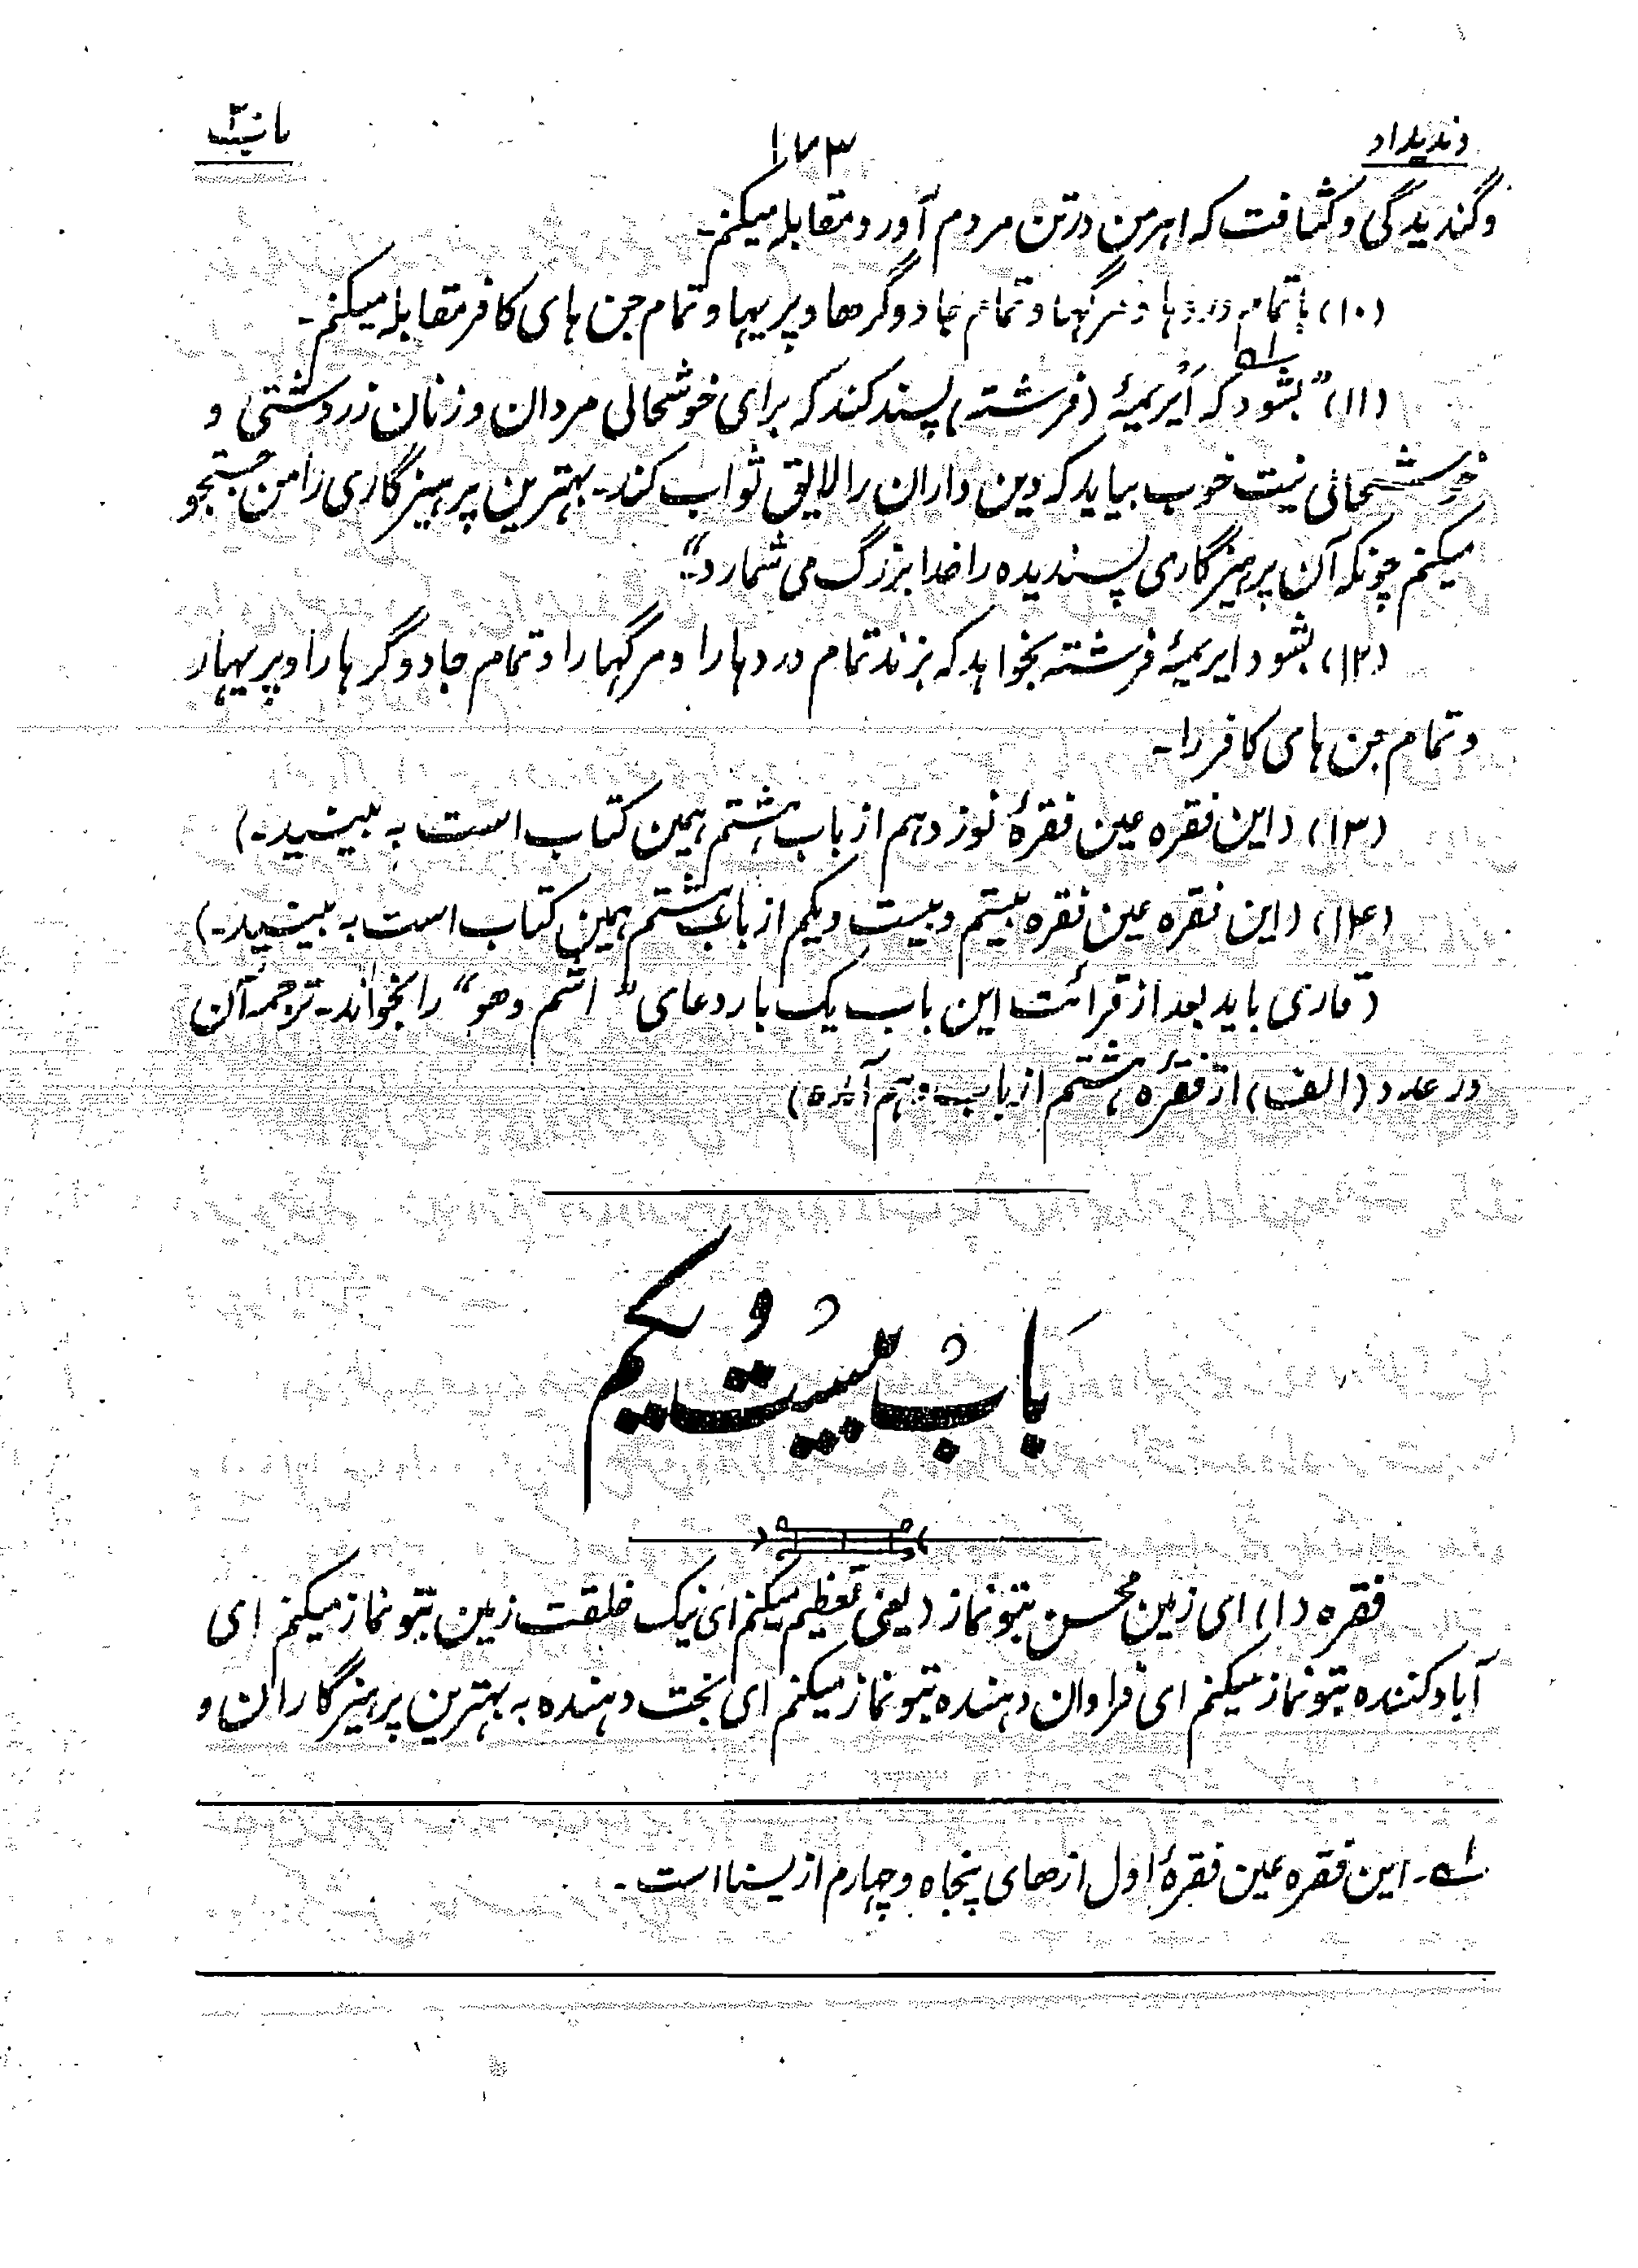 وندیداد ۱۷۳
وگندیدگی و کثافت که اهرمن درتن مردم آورد مقابله میکنم۔
(۱۰) با تمام دردها و مرگها و تمام جادوگرها و پریها و تمام جن های کافر مقابله میکنم۔
(۱۱) ”بشود که اَیریمهٔ (فرشته) پسند کند که برای خوشحالی مردان و زنان زردشتی و
خوشحالی نیت خوب بیاید که دین داران را لایق ثواب کند۔ بهترین پرهیزگاری را من جستجو
میکنم چونکه آن پرهیزگاری پسندیده را خدا بزرگ می شمارد“۔
(۱۲) بشود ایریمهٔ فرشته بخواهد که بزند تمام دردها را و مرگها را و تمام جادوگرها را و پریها را
و تمام جن های کافر را۔
(۱۳) (این فقره عین فقرهٔ نوزدهم از باب هشتم همین کتاب است به بینید۔)
(۱۴) (این فقره عین فقره بیستم و بیست و یکم از باب هشتم همین کتاب است به بینید۔)
(قاری باید بعد از قرائت این باب یک بار دعای ”اشم وهو“ را بخواند۔ ترجمه آن
در عدد (الف) از فقرهٔ هشتم از باب آمده)
باب بیست و یکم
فقره (۱) ای زمین محسن بتو نماز (یعنی تعظیم) میکنم ای نیک خلقت زمین بتو نماز میکنم ای
آباد کننده بتو نماز میکنم ای فراوان دهنده بتو نماز میکنم ای بخت دهنده به بهترین پرهیزگاران و
۱ه۔ این فقره عین فقرهٔ اول از های پنجاه و چهارم از یسنا است۔